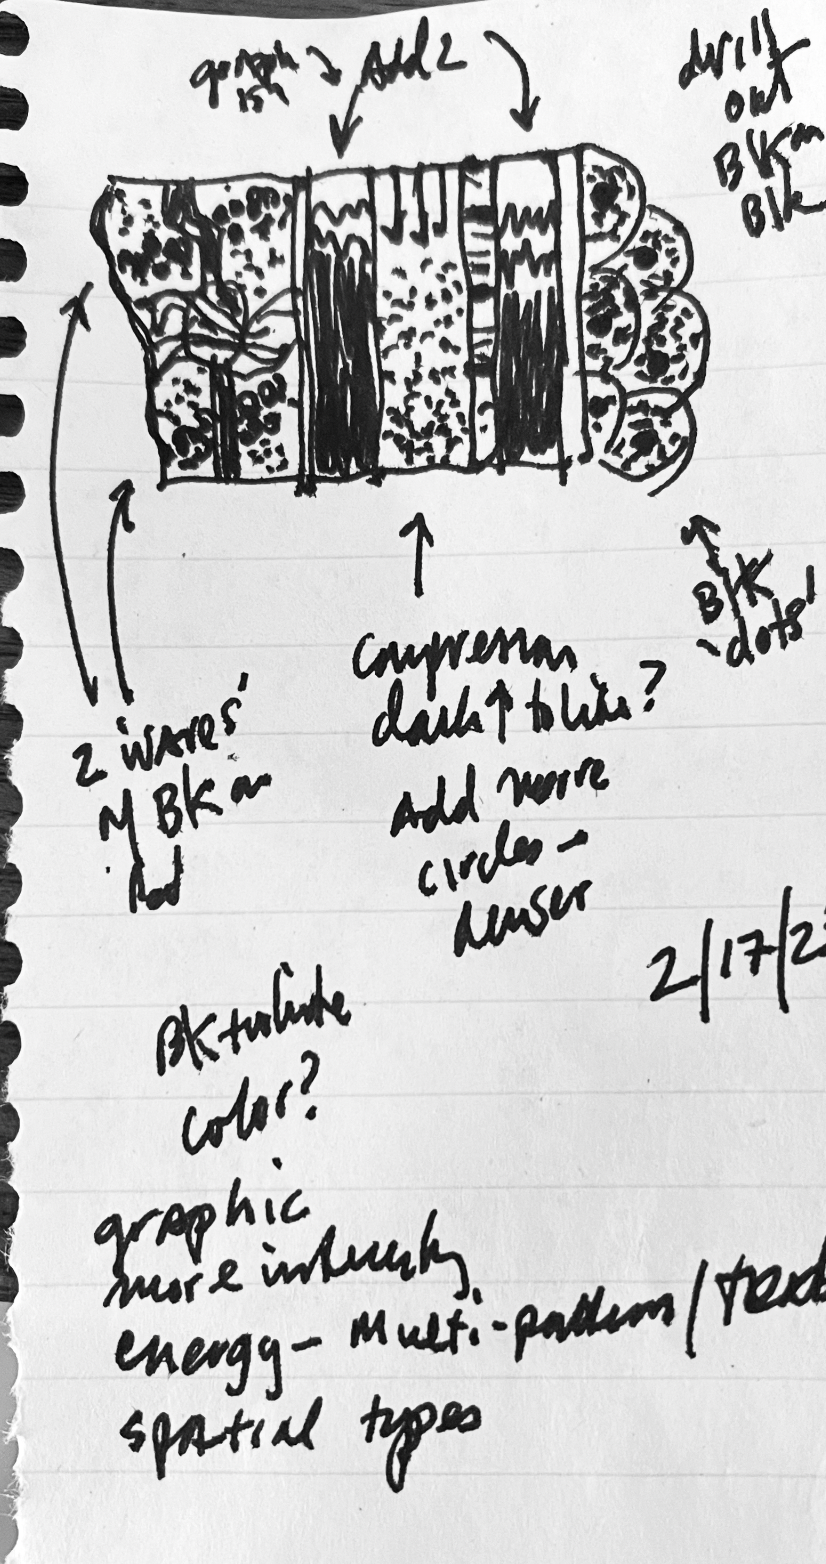 graph
ish
Add 2
drill
out
Blk on
Blk
Blk
'dots'
Compression
dark ↑ to
?
2 'waves'
BK on
Add more
circles –
denser
2/17/2
BK + white
color?
graphic
more intensity
energy – Multi-pattern /
spatial types